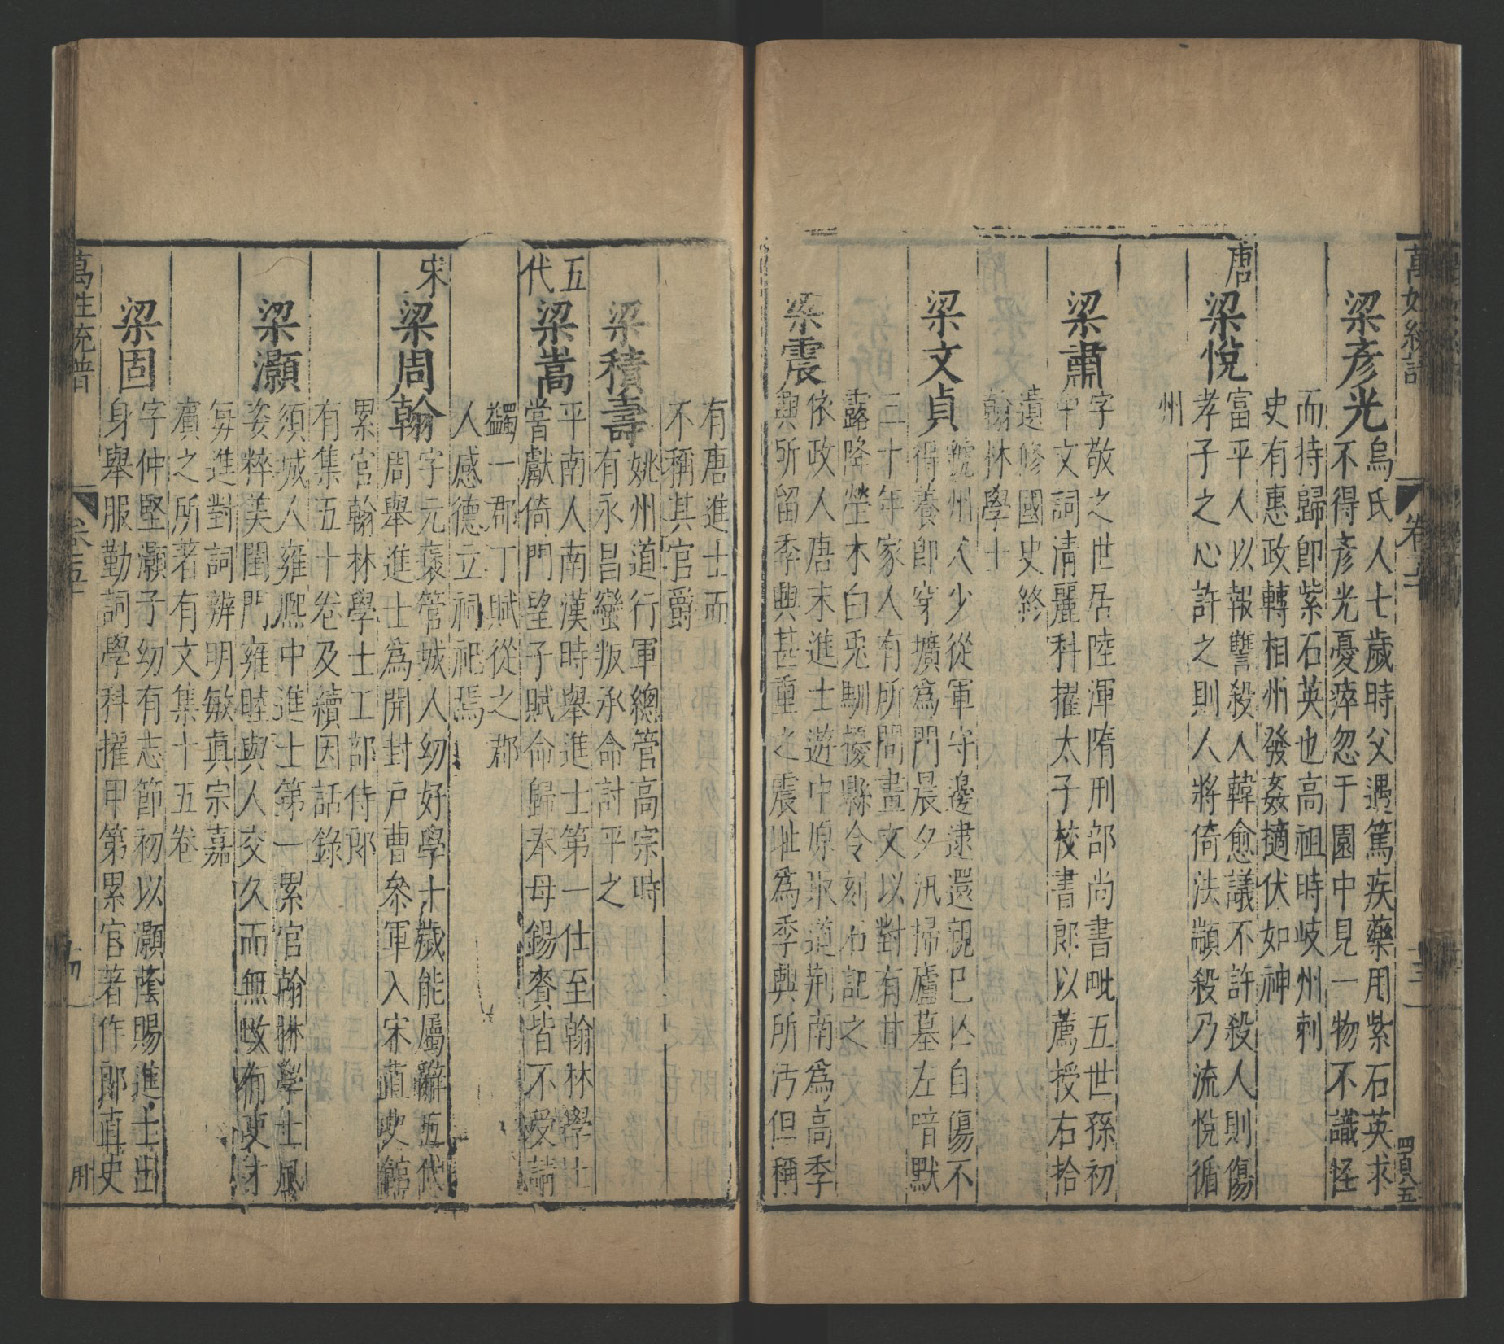 萬姓統譜
卷五
四頁五
梁彥光
烏氏人七歲時父遇篤疾藥用紫石英求
不得彥光憂瘁忽于園中見一物不識怪
而持歸即紫石英也高祖時岐州刺
史有惠政轉相州發姦擿伏如神
唐
梁悅
富平人以報讐殺人韓愈議不許殺人則傷
孝子之心許之則人將倚法顓殺乃流悅循
州
梁肅
字敬之世居陸渾隋刑部尚書毗五世孫初
中文詞清麗科擢太子校書郎以薦授右拾
遺修國史終
翰林學士
梁文貞
虢州人少從軍守邊逮還親已亾自傷不
得養即穿壙爲門晨夕汛掃廬墓左喑默
三十年家人有所問畫文以對有甘
露降塋木白兎馴擾縣令刻石記之
梁震
依政人唐末進士遊中原取道荆南爲高季
興所留季興甚重之震耻爲季興所汚但稱
有唐進士而
不稱其官爵
梁積壽
姚州道行軍總管高宗時
有永昌蠻叛承命討平之
五代
梁嵩
平南人南漢時舉進士第一仕至翰林學士
嘗獻倚門望子賦命歸奉母錫賚皆不受請
蠲一郡丁賦從之郡
人感德立祠祀焉
宋
梁周翰
字元褒管城人幼好學十歲能屬辭五代
周舉進士爲開封戸曹參軍入宋直史館
累官翰林學士工部侍郎
有集五十卷及續因話錄
梁灝
須城人雍熈中進士第一累官翰林學士風
姿粹美閨門雍睦與人交久而無改術吏才
每進對詞辨明敏真宗嘉
賞之所著有文集十五卷
梁固
字仲堅灝子幼有志節初以灝蔭賜進士出
身舉服勤詞學科擢甲第累官著作郎直史
萬姓統譜
卷五